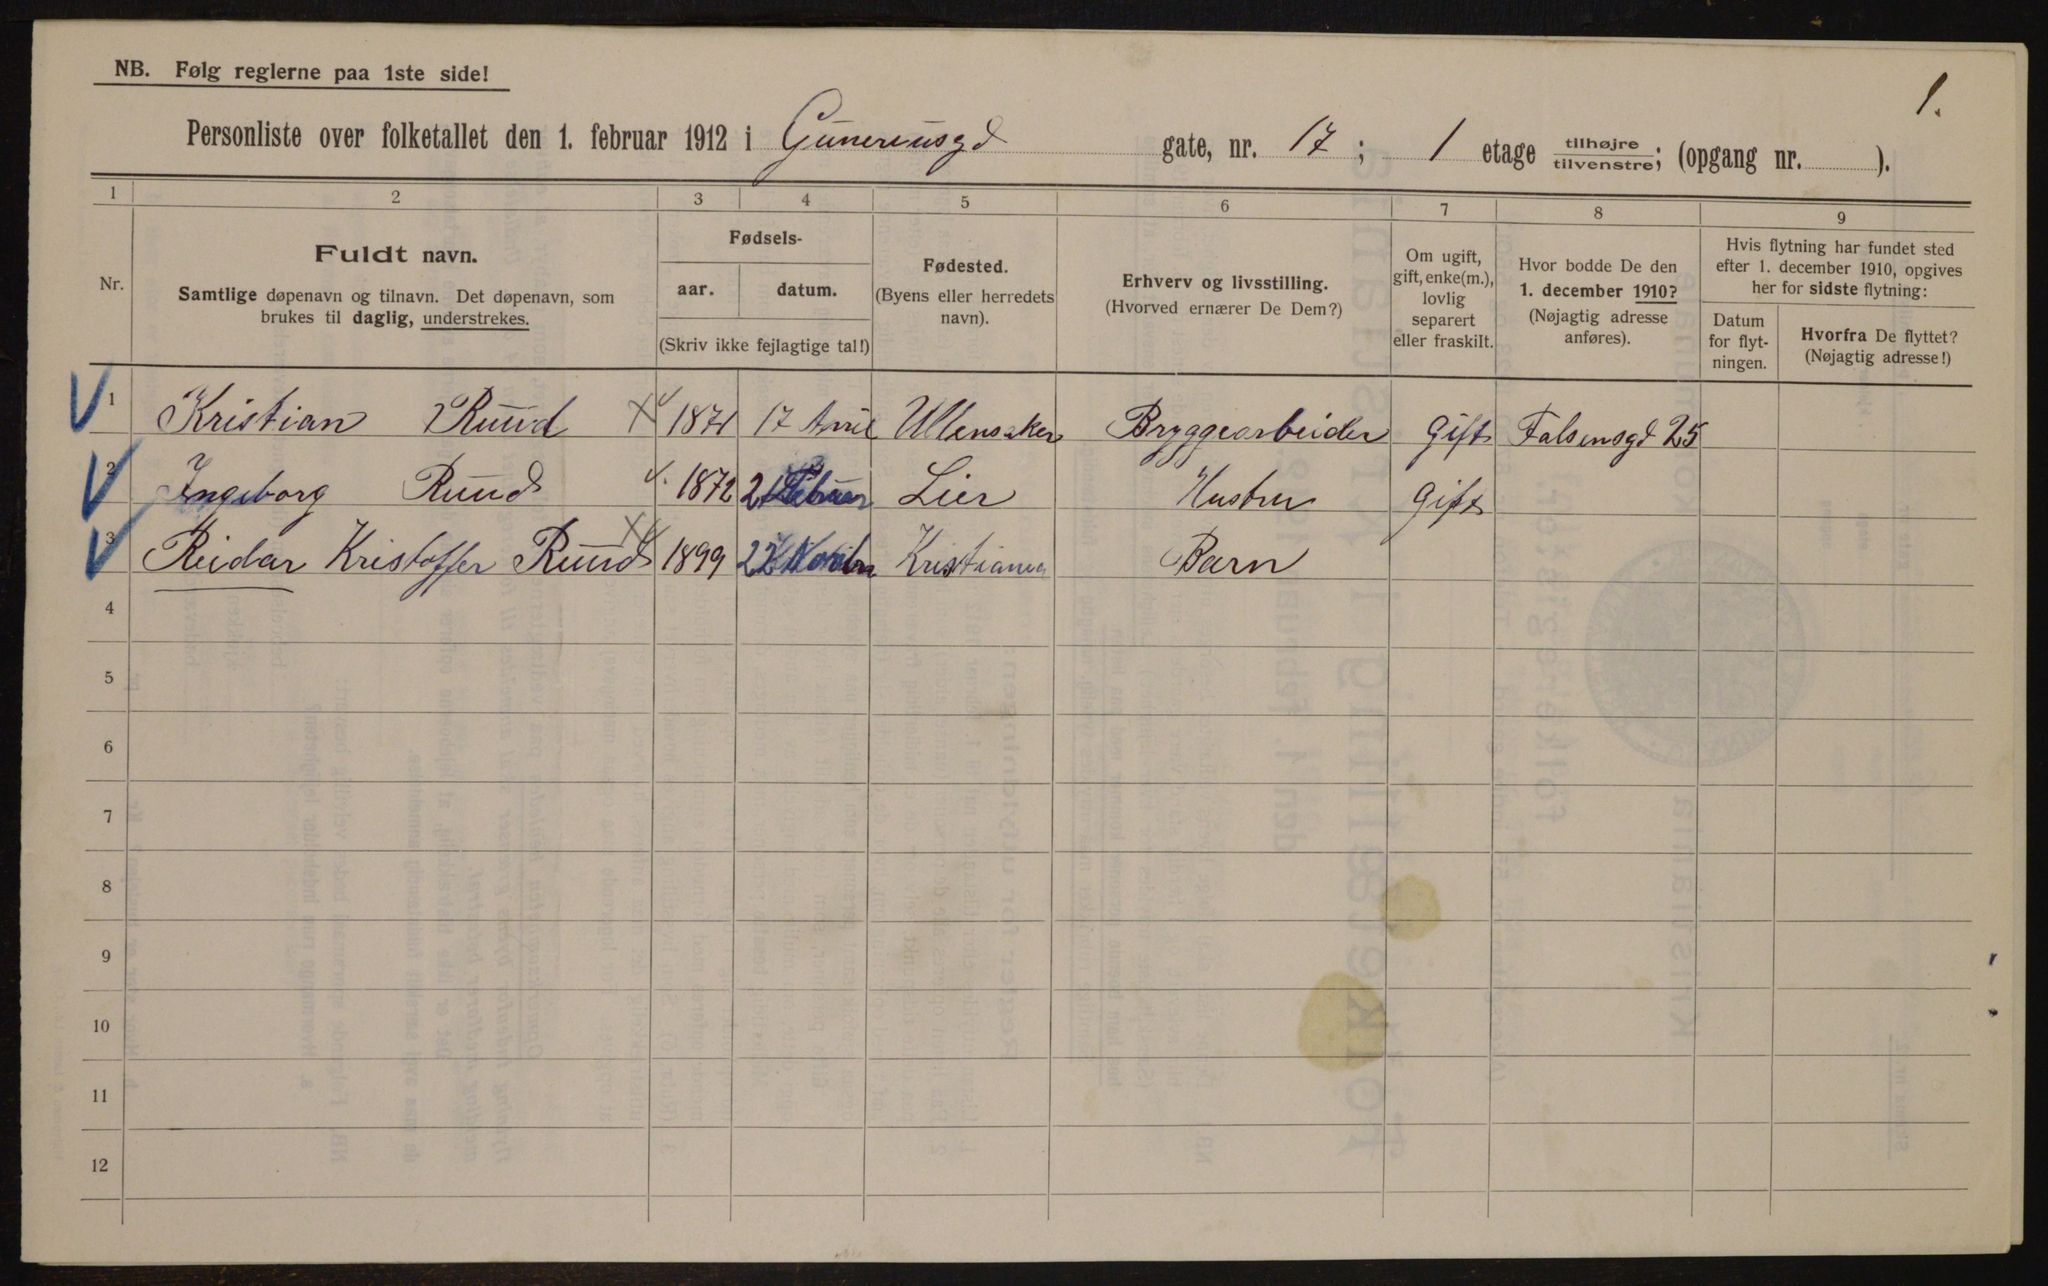 NB. Følg reglerne paa 1ste side!
1.
Personliste over folketallet den 1. februar 1912 i Gunerusgd gate, nr. 17 ; 1 etage tilhøjre / tilvenstre; (opgang nr. ).
1 2 3 4 5 6 7 8 9
Nr.
Fuldt navn.
Samtlige døpenavn og tilnavn. Det døpenavn, som
brukes til daglig, understrekes.
Fødsels-
aar. datum.
(Skriv ikke fejlagtige tal!)
Fødested.
(Byens eller herredets
navn).
Erhverv og livsstilling.
(Hvorved ernærer De Dem?)
Om ugift,
gift, enke(m.),
lovlig
separert
eller fraskilt.
Hvor bodde De den
1. december 1910?
(Nøjagtig adresse
anføres).
Hvis flytning har fundet sted
efter 1. december 1910, opgives
her for sidste flytning:
Datum
for flyt-
ningen.
Hvorfra De flyttet?
(Nøjagtig adresse!)
1 Kristian Ruud 1871 17 April Ullensaker Bryggearbeider Gift Falsensgd 25
2 Ingeborg Ruud 1872 21 Februar Lier Hustru Gift
3 Reidar Kristoffer Ruud 1899 22 Kristiania Barn
4
5
6
7
8
9
10
11
12